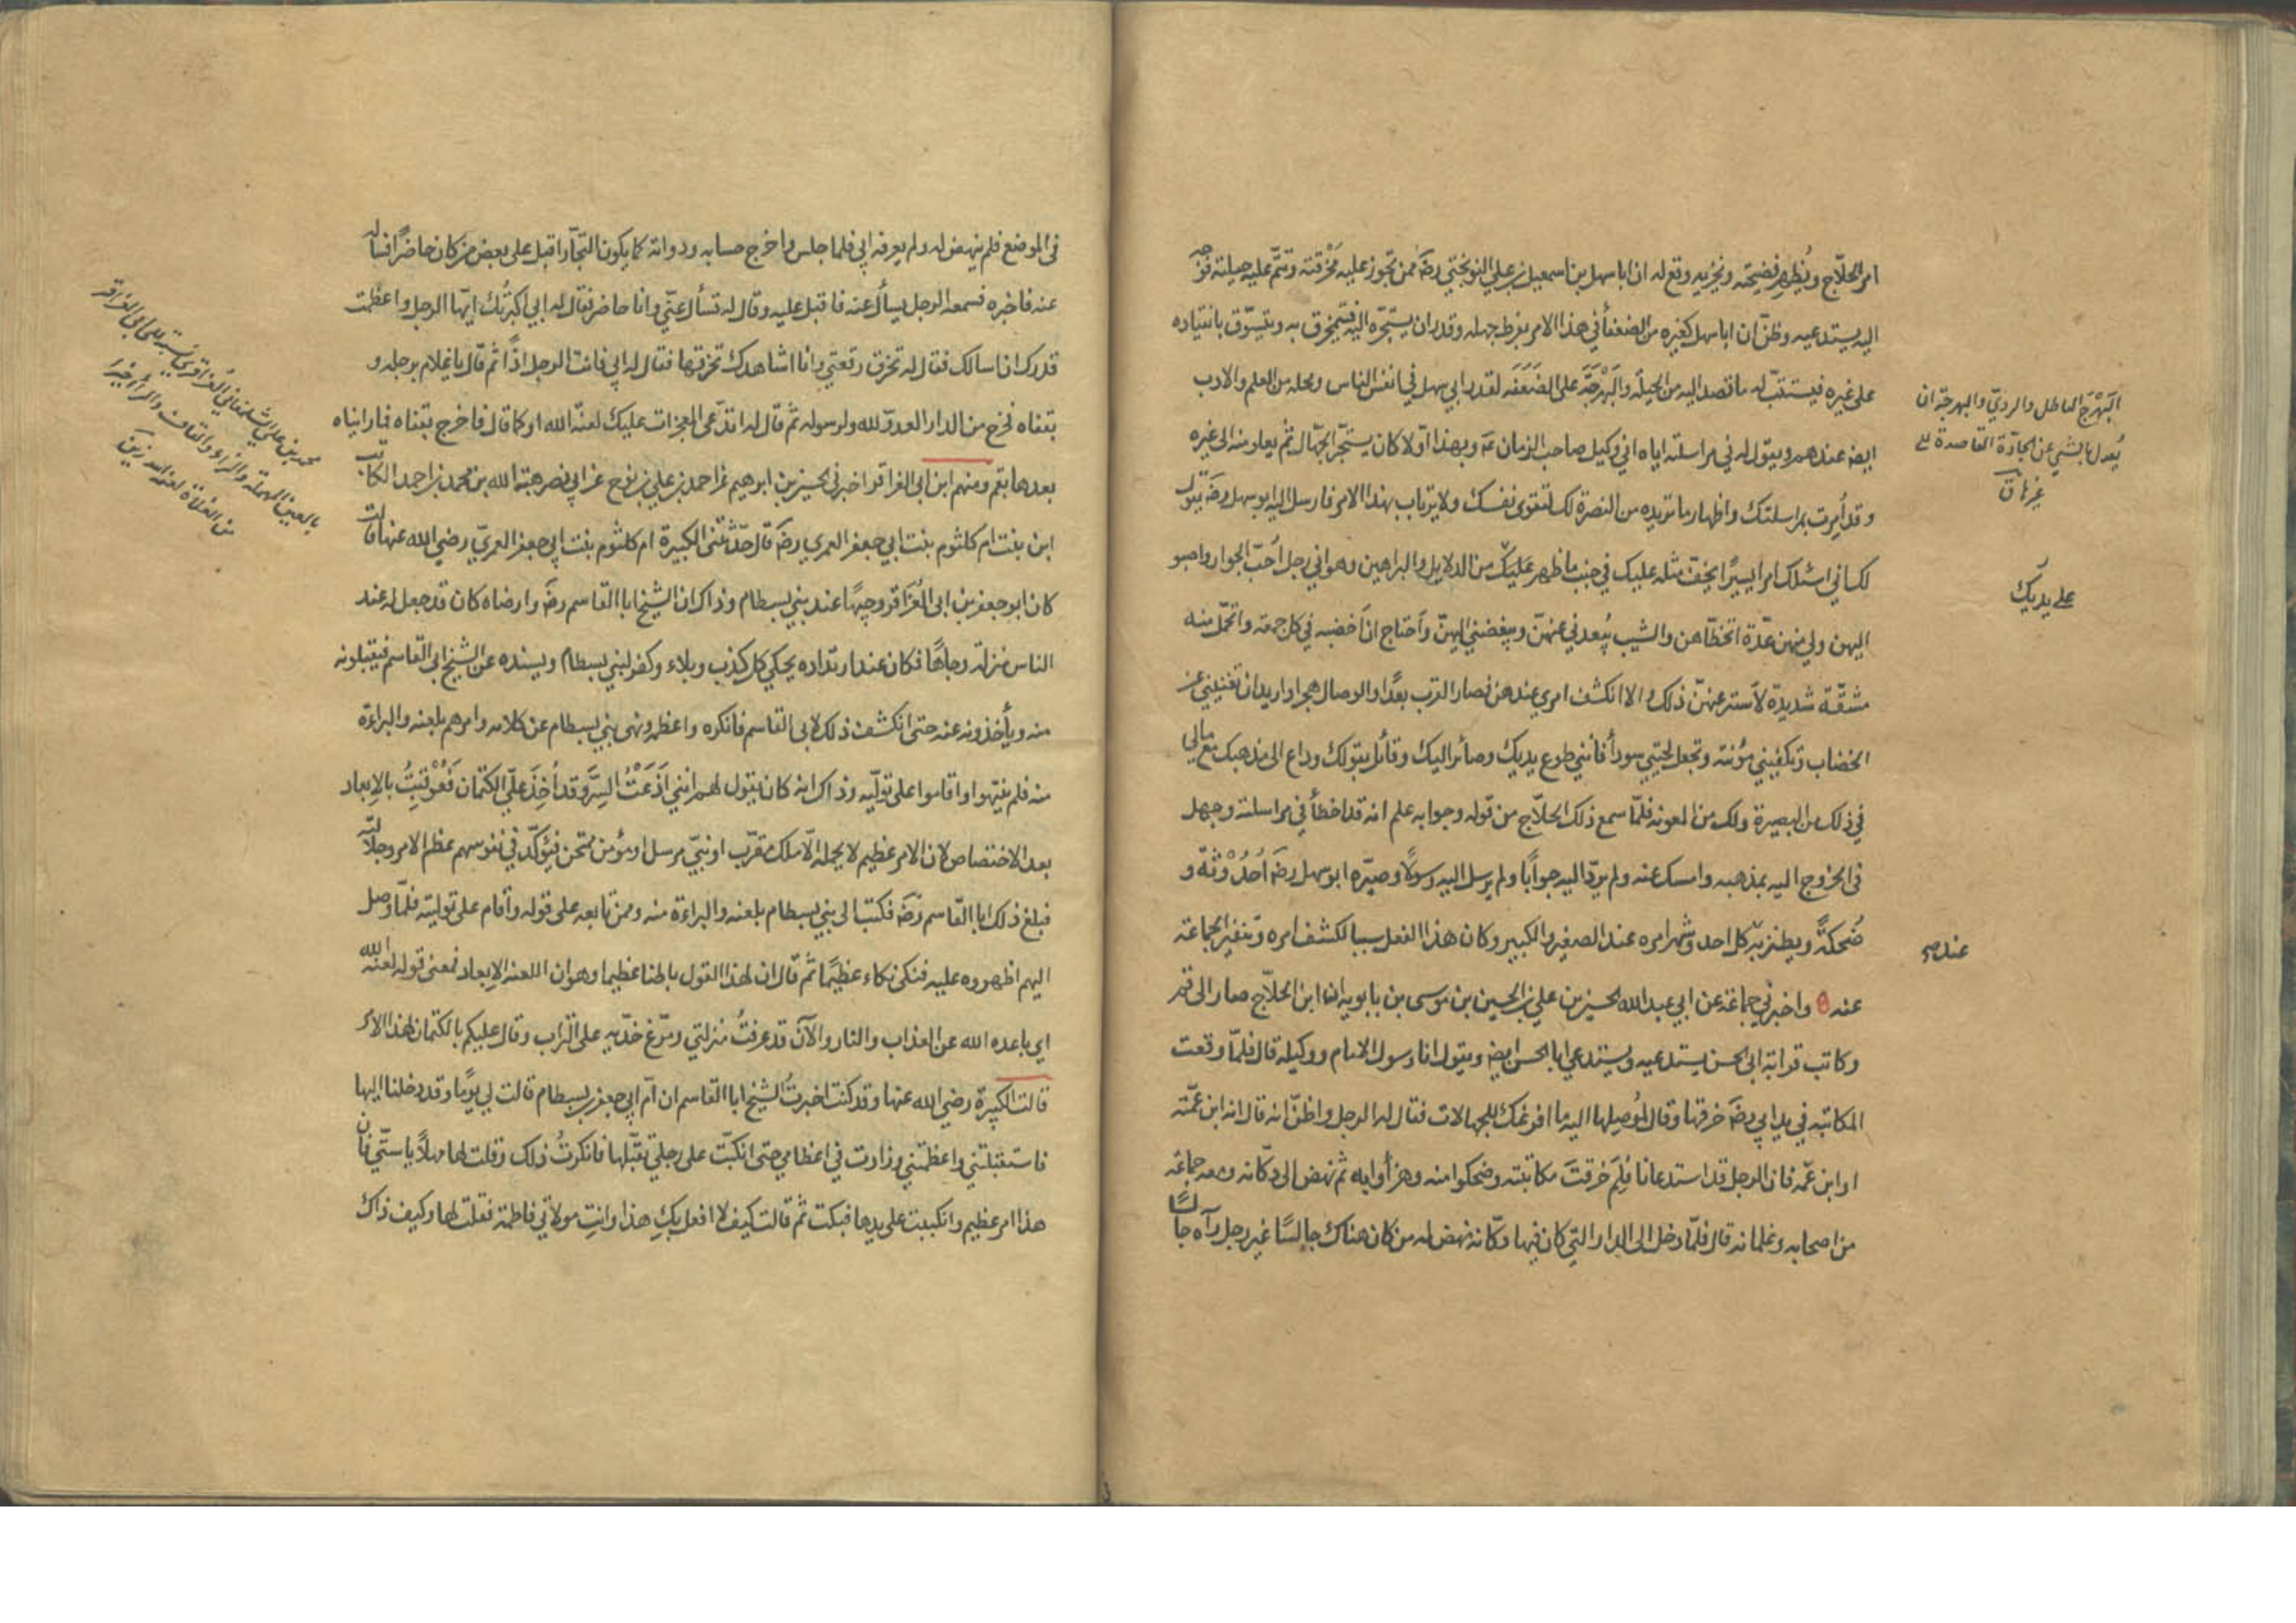 امر الحلاج ويُظهر فضيحته ويُخزيه وقع له ان ابا سهل بن اسمعيل بن علي النوبختي رضه ممن تجوز عليه مخرقته وتتمّ عليه حيلته فوجه
اليه يستدعيه وظنّ ان ابا سهل كغيره من الضعفأ في هذا الامر بفرط جهله وقدر ان يستجرّه اليه فيتمخرق به ويتسوّق بانقياده
على غيره فيستتبّ له ما قصد اليه من الحيلة والبَهْرجَة على الضَعَفَه لقدر ابي سهل في انفس الناس ومحله من العلم والادب
ايضه عندهم ويقول له في مراسلته اياه اني وكيل صاحب الزمان عه وبهذا اوّلا كان يستجرّ الجهّال ثم يعلو منه الى غيره
وقد أمِرت بمراسلتك واظهار ما تريده من النصرة لك لتقوى نفسك ولا يرتاب بهذا الامر فارسل اليه ابو سهل رضه يقول
لك اني اسئلك امرا يسيرًا يخفّ مثله عليك في جنب ما ظهر عليك من الدلايل والبراهين وهو اني رجل أحبّ الجوار واصبو
اليهن ولي منهن عدّة اتخطّاهن والشيب يُبعدني عنهنّ ويبغضني اليهنّ وأحتاج ان أخضبه في كل جمعة واتحمّل منه
مشقّة شديدة لأستر عنهنّ ذلك والا انكشف امري عندهن فصار القرب بعدًا والوصال هجرا واريد ان تغنيني عن
الخضاب وتكفيني مؤنته وتجعل لحيتي سودأ فانني طوع يديك وصائر اليك وقائل بقولك وداع الى مذهبك مع مالي
في ذلك من البصيرة ولك من المعونه فلمّا سمع ذلك الحلّاج من قوله وجوابه علم انه قد اخطأ في مراسلته وجهل
في الخروج اليه بمذهبه وامسك عنه ولم يردّ اليه جوابًا ولم يرسل اليه رسولًا وصيّره ابو سهل رضه أحْدُوْثَةً و
ضُحكةً ويطنز به كل احد وشهر امره عند الصغير والكبير وكان هذا الفعل سببا لكشف امره وتنفير الجماعة
عنه ٥ واخبرني جماعة عن ابي عبد الله الحسين بن علي بن الحسين بن موسى بن بابويه ان ابن الحلّاج صار الى قم
وكاتب قرابة ابي الحسن يستدعيه ويستدعي ابا الحسن ايضه ويقول انا رسول الامام ووكيله قال فلمّا وقعت
المكاتبه في يد ابي رضه خرقها وقال لموصلها اليه ما افرغك للجهالات فقال له الرجل واظنّ انه قال انه ابن عمّته
او ابن عمّه فان الرجل قد استدعانا فلِمَ خرقتَ مكاتبته وضحكوا منه وهزأوا به ثم نهض الى دكّانه ومعه جماعة
من اصحابه وغلمانه قال فلمّا دخل الى الدار التي كان فيها دكّانه نهض له من كان هناك جالسًا غير رجل رآه جالسًا
البَهْرَج الباطل والرديّ والبهرجة ان
يُعدل بالشي عن الجادّة القاصدة الى
غيرها ق
على يديك
عندهم
في الموضع فلم ينهض له ولم يعرفه ابي فلما جلس واخرج حسابه ودواته كما يكون التجّار اقبل على بعض من كان حاضرًا فساله
عنه فاخبره فسمعه الرجل يسأل عنه فاقبل عليه وقال له تسأل عنّي وانا حاضر فقال له ابي اكبرتُك ايّها الرجل واعظمت
قدرك ان اسالك فقال له تخرق رقعتي وانا اشاهدك تخرقها فقال له ابي فانت الرجل اذًا ثم قال يا غلام برجله و
بقفاه فخرج من الدار العدوّ لله ولرسوله ثمّ قال له اتدّعى المعجزات عليك لعنة الله او كما قال فاخرج بقفاه فما رايناه
بعدها بقم ومنهم ابن ابي العزاقر اخبرني الحسين بن ابرهيم عن احمد بن علي بن نوح عن ابي نصر هبة الله بن محمد بن احمد الكاتب
ابن بنت ام كلثوم بنت ابي جعفر العمري رضه قال حدّثتني الكبيرة ام كلثوم بنت ابي جعفر العمريّ رضي الله عنها قالت
كان ابو جعفر بن ابي العزاقر وجيهًا عند بني بسطام وذاك ان الشيخ ابا القاسم رضه وارضاه كان قد جعل له عند
الناس منزلة وجاهًا فكان عند ارتداده يحكي كل كذب وبلاء وكفر لبني بسطام ويسنده عن الشيخ ابي القاسم فيقبلونه
منه ويأخذونه عنه حتى انكشف ذلك لابي القاسم فانكره واعظمه ونهى بني بسطام عن كلامه وامرهم بلعنه والبراءة
منه فلم ينتهوا واقاموا على تولّيه وذاك انه كان يقول لهم انني أذَعْتُ السِرَّ وقد أُخِذَ عليّ الكتمان فعُوْقبْتُ بالابعاد
بعد الاختصاص لان الامر عظيم لا يحمله الّا ملك مقرّب او نبيّ مرسل او مؤمن ممتحن فيؤكّد في نفوسهم عظم الامر وجلالته
فبلغ ذلك ابا القاسم رضه فكتب الى بني بسطام بلعنه والبراءة منه وممن تابعه على قوله وأقام على توليته فلمّا وصل
اليهم اظهروه عليه فبكى بكاء عظيمًا ثم قال ان لهذا القول باطنا عظيما وهو ان اللعنه الابعاد فمعنى قوله لعنه الله
اي باعده الله عن العذاب والنار والآن قد عرفتُ منزلتي ومرّغ خدّيه على التراب وقال عليكم بالكتمان لهذا الامر
قالت الكبيرة رضي الله عنها وقد كنت اخبرتُ الشيخ ابا القاسم ان أمّ ابي جعفر بن بسطام قالت لي يومًا وقد دخلنا اليها
فاستقبلتني واعظمتني وزادت في اعظامي حتى انكبّت على رجلي تقبّلها فانكرتُ ذلك وقلت لها مهلًا يا ستّي فان
هذا امر عظيم وانكببت على يدها فبكت ثم قالت كيف لا افعل بكِ هذا وانتِ مولاتي فاطمة فقلت لها وكيف ذاك
محمد بن علي الشلمغاني العزاقري نسبة الى ابي العزاقر
بالعين المهملة والزاء والقاف والراء اخيرًا
من الغلاة لعنه الله